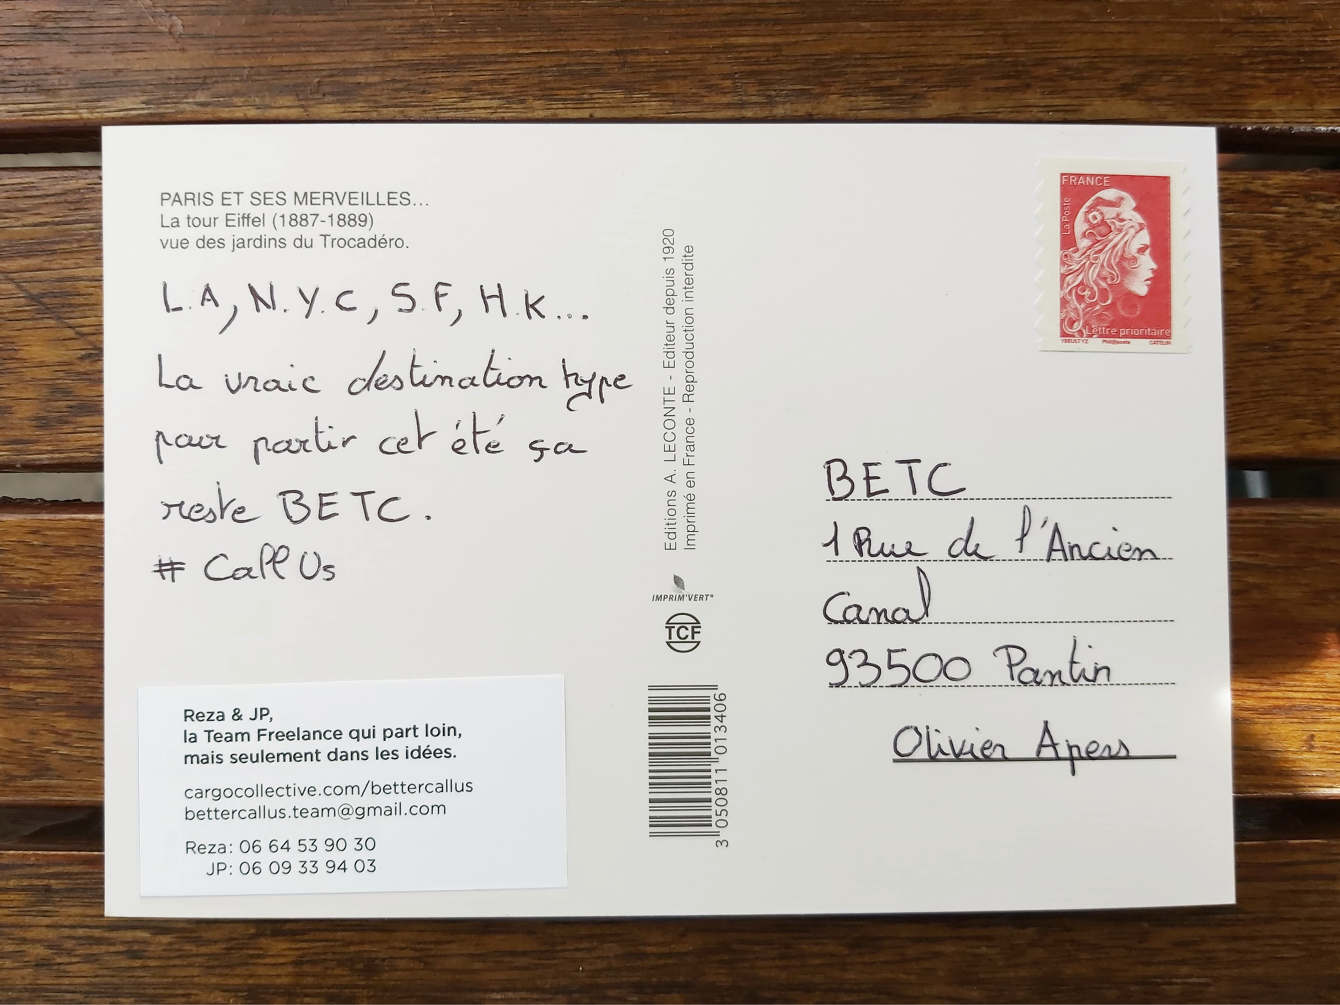 PARIS ET SES MERVEILLES...
La tour Eiffel (1887-1889)
vue des jardins du Trocadéro.
L.A, N.Y.C, S.F, H.K...
La vraie destination type
pour partir cet été ça
reste BETC.
# Call Us
Reza & JP,
la Team Freelance qui part loin,
mais seulement dans les idées.
cargocollective.com/bettercallus
bettercallus.team@gmail.com
Reza: 06 64 53 90 30
JP: 06 09 33 94 03
Editions A. LECONTE - Editeur depuis 1920
Imprimé en France - Reproduction interdite
IMPRIM'VERT®
TCF
3 050811 013406
FRANCE
La Poste
Lettre prioritaire
YSEULT YZ Phil@poste CATELIN
BETC
1 Rue de l'Ancien
Canal
93500 Pantin
Olivier Apers